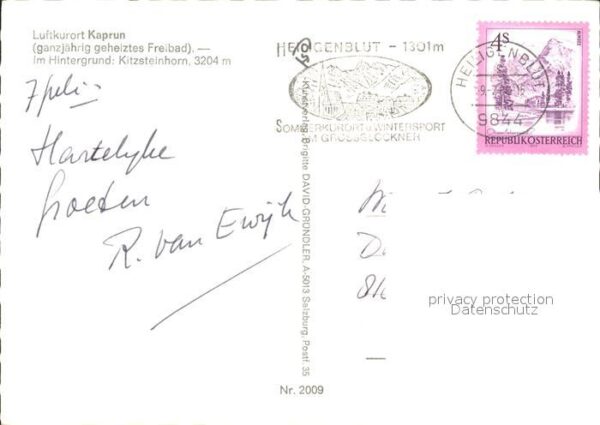 Luftkurort Kaprun
(ganzjährig geheiztes Freibad). —
Im Hintergrund: Kitzsteinhorn, 3204 m
7 juli
Hartelyke
Groeten
R. van Ewijk
HEILIGENBLUT - 1301m
SOMMERKURORT u. WINTERSPORT
AM GROSSGLOCKNER
HEILIGENBLUT
9844
4 S
REPUBLIK ÖSTERREICH
Kunstverlag Brigitte DAVID-GRÜNDLER, A-5013 Salzburg, Postf. 35
Nr. 2009
privacy protection
Datenschutz